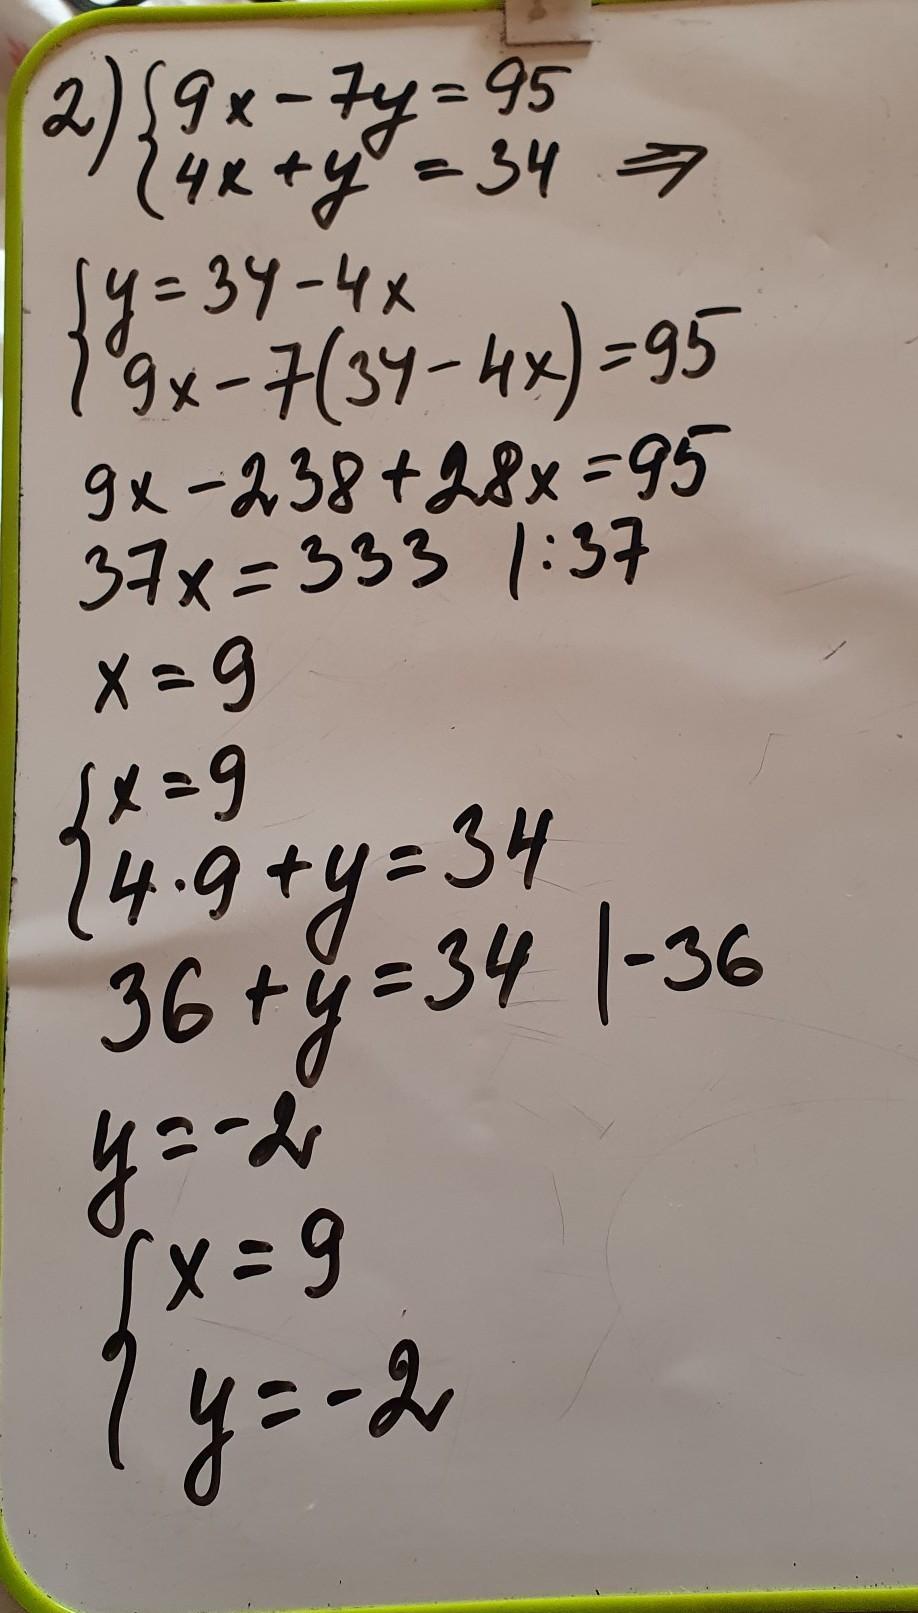 2) { 9x - 7y = 95
{ 4x + y = 34 ⇒
{ y = 34 - 4x
{ 9x - 7(34 - 4x) = 95
9x - 238 + 28x = 95
37x = 333 |:37
x = 9
{ x = 9
{ 4·9 + y = 34
36 + y = 34 |-36
y = -2
{ x = 9
{ y = -2